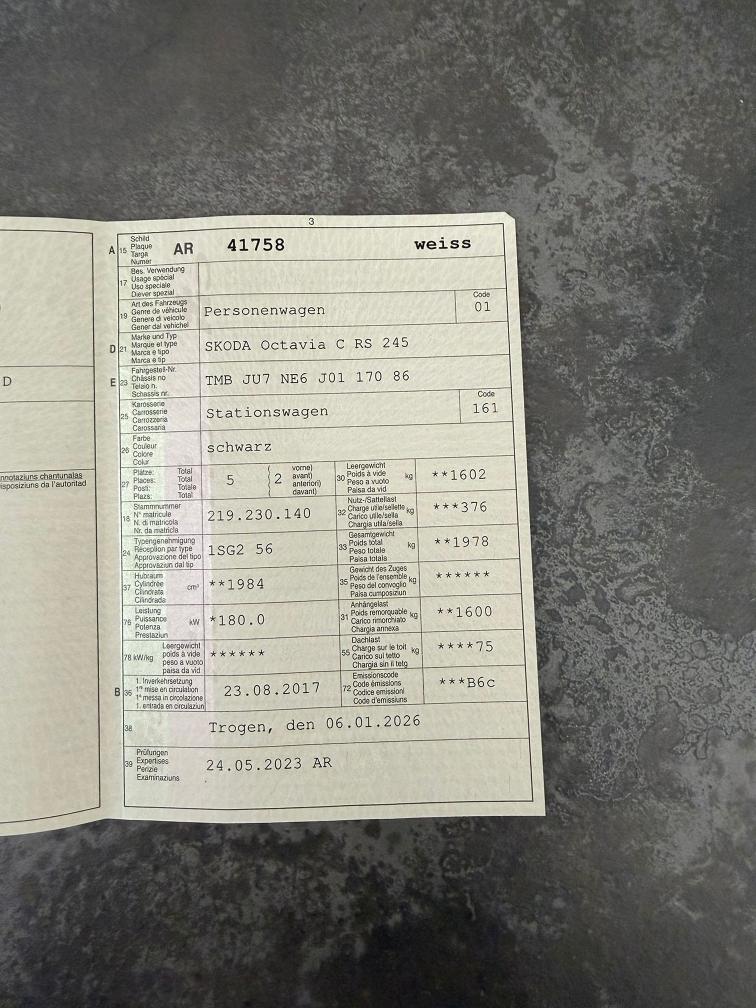 3
D
nnotaziuns chantunalas
isposiziuns da l'autoritad
A 15 Schild Plaque Targa Numer AR 41758 weiss
17 Bes. Verwendung Usage spécial Uso speciale Diever spezial
19 Art des Fahrzeugs Genre de véhicule Genere di veicolo Gener dal vehichel Personenwagen Code 01
D 21 Marke und Typ Marque et type Marca e tipo Marca e tip SKODA Octavia C RS 245
E 23 Fahrgestell-Nr. Châssis no Telaio n. Schassis nr. TMB JU7 NE6 J01 170 86
25 Karosserie Carrosserie Carrozzeria Carossaria Stationswagen Code 161
26 Farbe Couleur Colore Colur schwarz
27 Plätze: Total Places: Total Posti: Totale Plazs: Total 5 2 vorne) avant) anteriori) davant) 30 Leergewicht Poids à vide Peso a vuoto Paisa da vid kg **1602
18 Stammnummer N° matricule N. di matricola Nr. da matricla 219.230.140 32 Nutz-/Sattellast Charge utile/sellette Carico utile/sella Chargia utila/sella kg ***376
24 Typengenehmigung Réception par type Approvazione del tipo Approvaziun dal tip 1SG2 56 33 Gesamtgewicht Poids total Peso totale Paisa totala kg **1978
37 Hubraum Cylindrée Cilindrata Cilindrada cm³ **1984 35 Gewicht des Zuges Poids de l'ensemble Peso del convoglio Paisa cumposiziun kg ******
76 Leistung Puissance Potenza Prestaziun kW *180.0 31 Anhängelast Poids remorquable Carico rimorchiato Chargia annexa kg **1600
78 kW/kg Leergewicht poids à vide peso a vuoto paisa da vid ****** 55 Dachlast Charge sur le toit Carico sul tetto Chargia sin il tetg kg ****75
B 36 1. Inverkehrsetzung 1re mise en circulation 1a messa in circolazione 1. entrada en circulaziun 23.08.2017 72 Emissionscode Code émissions Codice emissioni Code d'emissiuns ***B6c
38 Trogen, den 06.01.2026
39 Prüfungen Expertises Perizie Examinaziuns 24.05.2023 AR